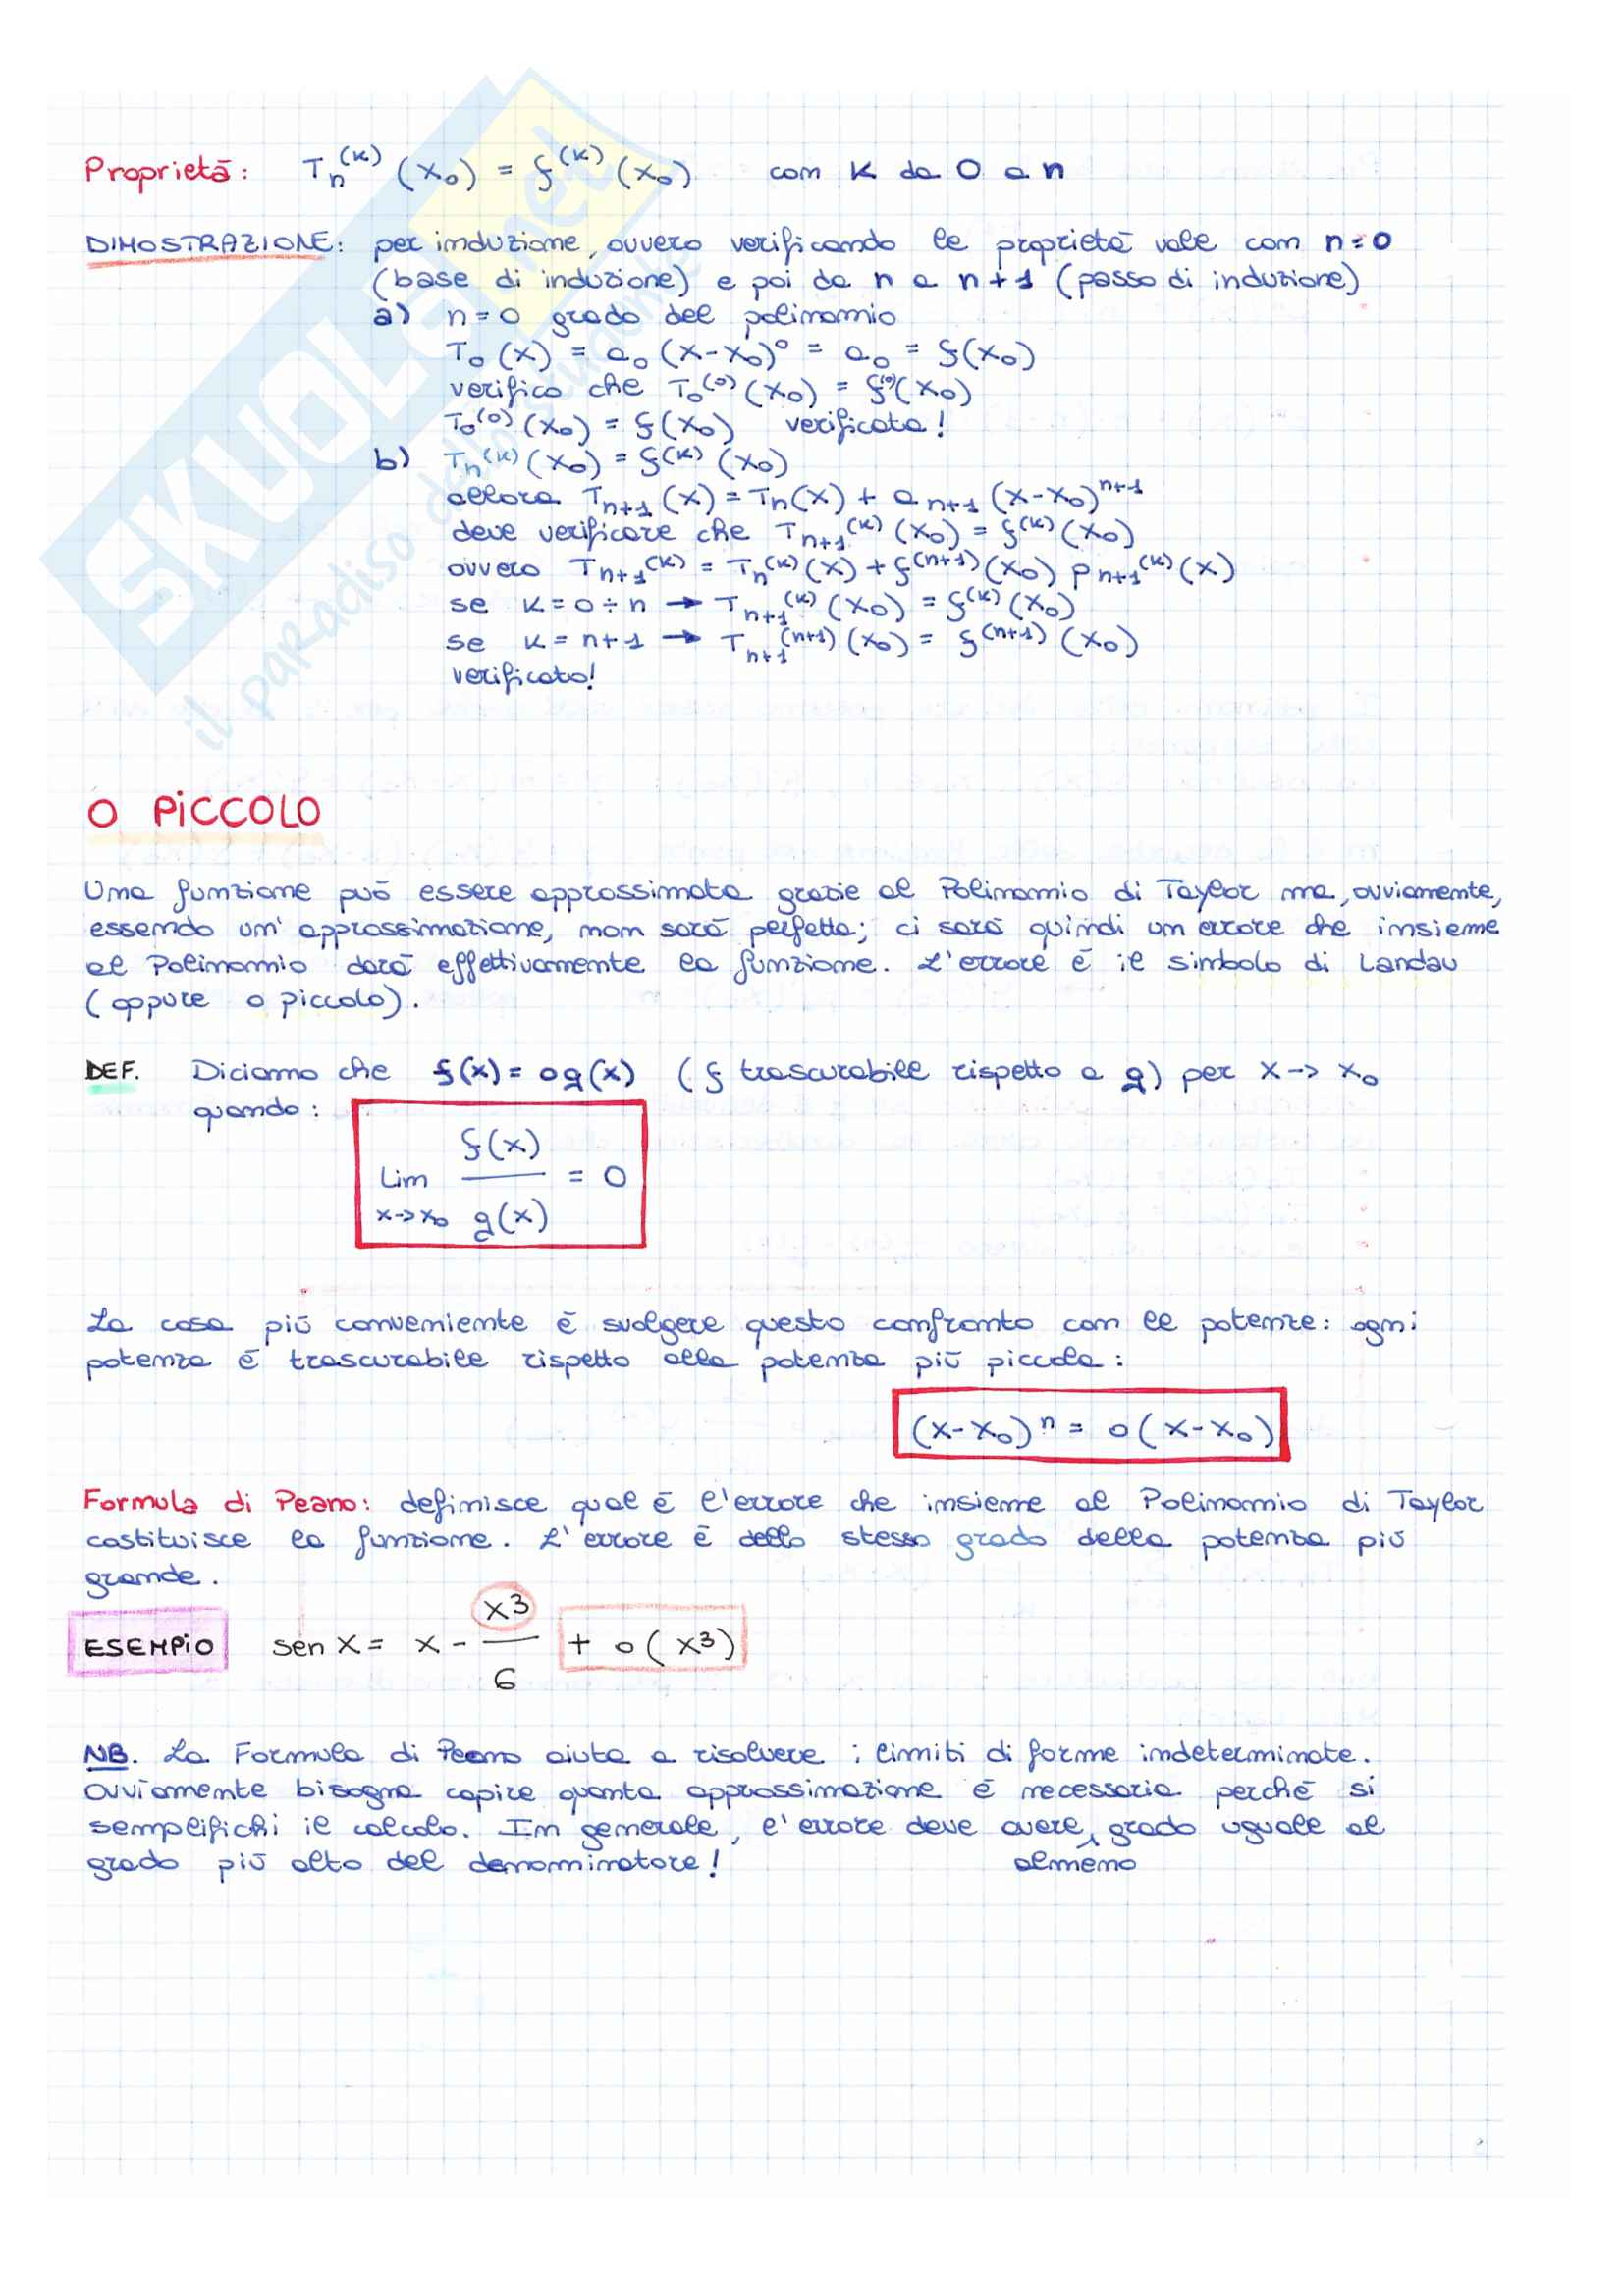 Proprietà: Tn^(k) (x₀) = f^(k) (x₀) con k da 0 a n
DIMOSTRAZIONE: per induzione, ovvero verificando le proprietà vale con n=0
(base di induzione) e poi da n a n+1 (passo di induzione)
a) n=0 grado del polinomio
T₀(x) = a₀(x-x₀)⁰ = a₀ = f(x₀)
verifico che T₀^(0)(x₀) = f^(0)(x₀)
T₀^(0)(x₀) = f(x₀) verificata!
b) Tn^(k)(x₀) = f^(k)(x₀)
allora Tn+1(x) = Tn(x) + an+1 (x-x₀)^n+1
deve verificare che Tn+1^(k)(x₀) = f^(k)(x₀)
ovvero Tn+1^(k) = Tn^(k)(x) + f^(n+1)(x₀) pn+1^(k)(x)
se k=0÷n → Tn+1^(k)(x₀) = f^(k)(x₀)
se k=n+1 → Tn+1^(n+1)(x₀) = f^(n+1)(x₀)
verificato!
O PiCCOLO
Una funzione può essere approssimata grazie al Polinomio di Taylor ma, ovviamente,
essendo un' approssimazione, non sarà perfetta; ci sarà quindi un errore che insieme
al Polinomio darà effettivamente la funzione. L'errore è il simbolo di Landau
(oppure o piccolo).
DEF. Diciamo che f(x) = og(x) (f trascurabile rispetto a g) per x→x₀
quando:
Lim x→x₀ f(x)/g(x) = 0
La cosa più conveniente è svolgere questo confronto con le potenze: ogni
potenza è trascurabile rispetto alla potenza più piccola:
(x-x₀)^n = o(x-x₀)
Formula di Peano: definisce qual è l'errore che insieme al Polinomio di Taylor
costituisce la funzione. L'errore è dello stesso grado della potenza più
grande.
ESEMPiO sen x = x - x³/6 + o(x³)
NB. La Formula di Peano aiuta a risolvere i limiti di forme indeterminate.
Ovviamente bisogna capire quanta approssimazione è necessaria perché si
semplifichi il calcolo. In generale, l'errore deve avere almeno grado uguale al
grado più alto del denominatore!
SKUOLA.net
il paradiso dello studente